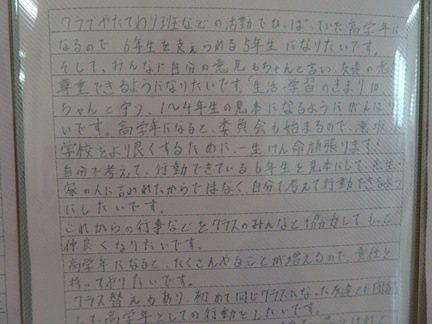 クラブやたてわり班などの活動でひっぱっていた高学年に
なるので、6年生を支えられる5年生になりたいです。
そして、みんなに自分の意見もちゃんと言い、友達の意
尊重できるようになりたいです。「生活・学習のきまり」
ちゃんと守り、1〜4年生の見本になるようにがんば
いです。高学年になると、委員会も始まるので、
学校をより良くするために、一生けん命頑張ります！
自分で考えて、行動できている6年生を見本にして、先生
家の人に言われたからではなく、自分で考えて行動できるよう
にしたいです。
これからの行事などをクラスのみんなと協力してもっと
仲良くなりたいです。
高学年になると、たくさんやることが増えるので、責任を
持ってやりたいです。
クラス替えもあり、初めて同じクラスになった友達とも
した高学年としての行動をしたいです。